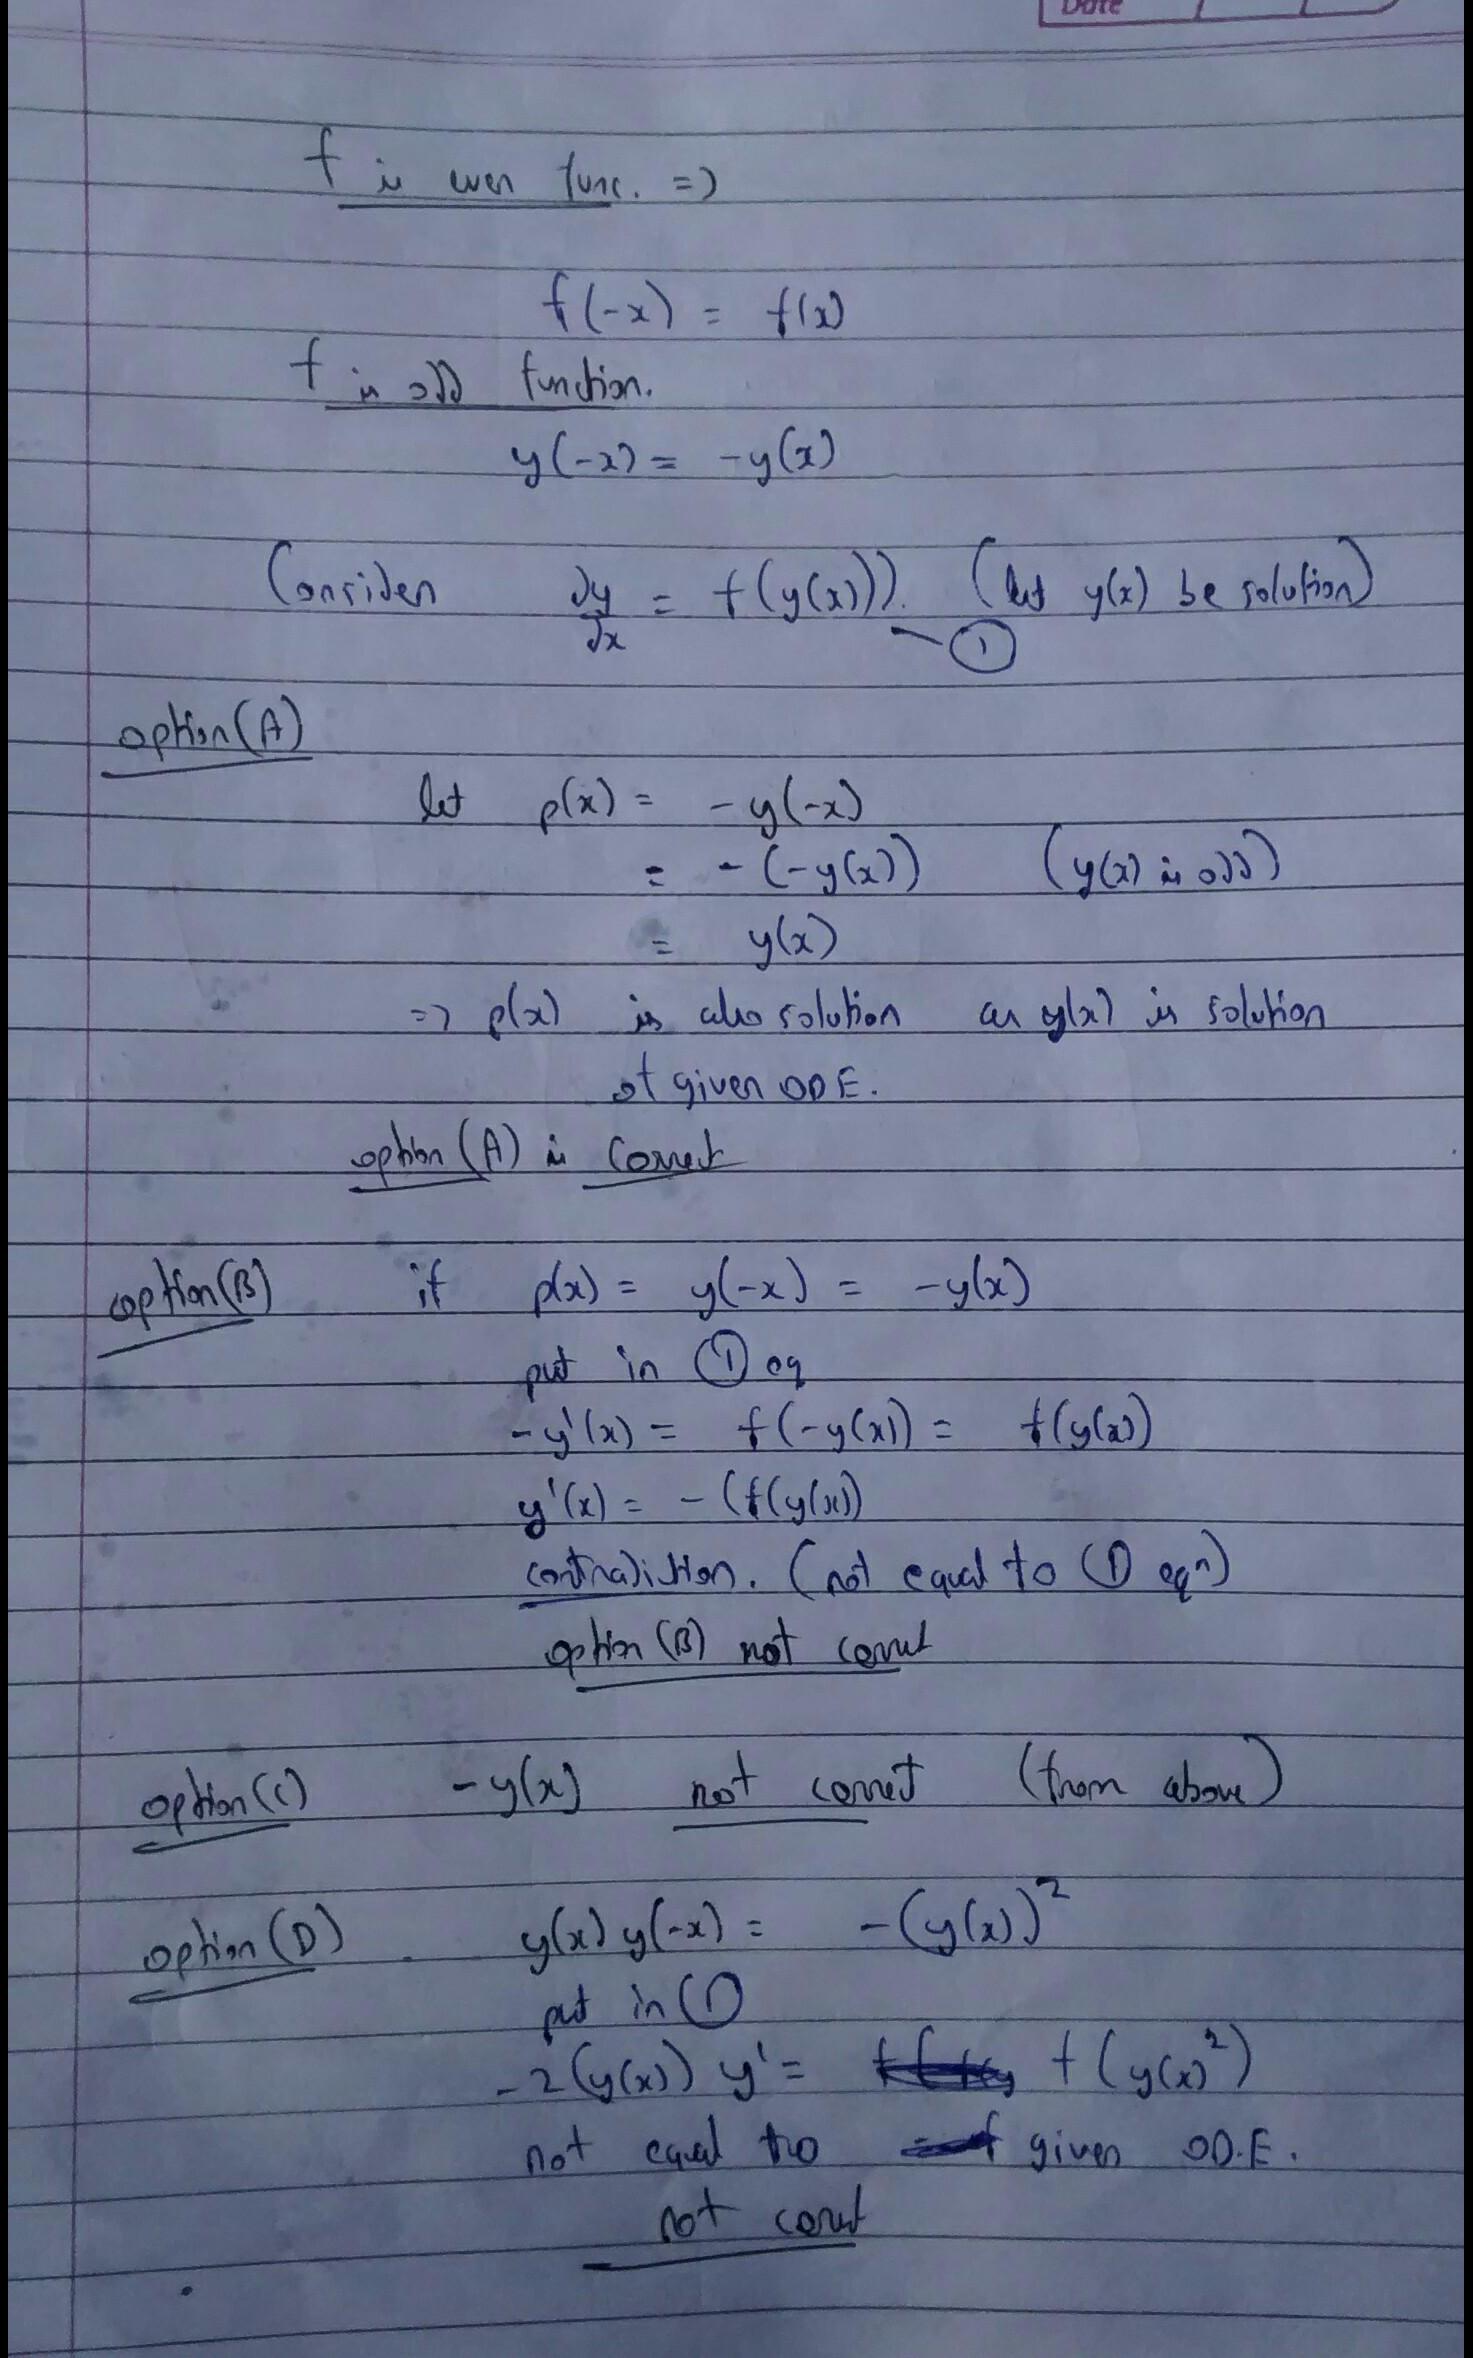 Date
f is even func. =>
f(-x) = f(x)
f is odd function.
y(-x) = -y(x)
Consider dy/dx = f(y(x)). (let y(x) be solution)
①
option (A)
let p(x) = -y(-x)
= -(-y(x)) (y(x) is odd)
= y(x)
=> p(x) is also solution as y(x) is solution
of given ODE.
option (A) is correct
option (B) if p(x) = y(-x) = -y(x)
put in ① eq
-y'(x) = f(-y(x)) = f(y(x))
y'(x) = -(f(y(x))
contradiction. (not equal to ① eqn)
option (B) not correct
option (C) -y(x) not correct (from above)
option (D) y(x) y(-x) = -(y(x))²
put in ①
-2(y(x)) y' = f(y(x)²)
not equal to given OD.E.
not correct